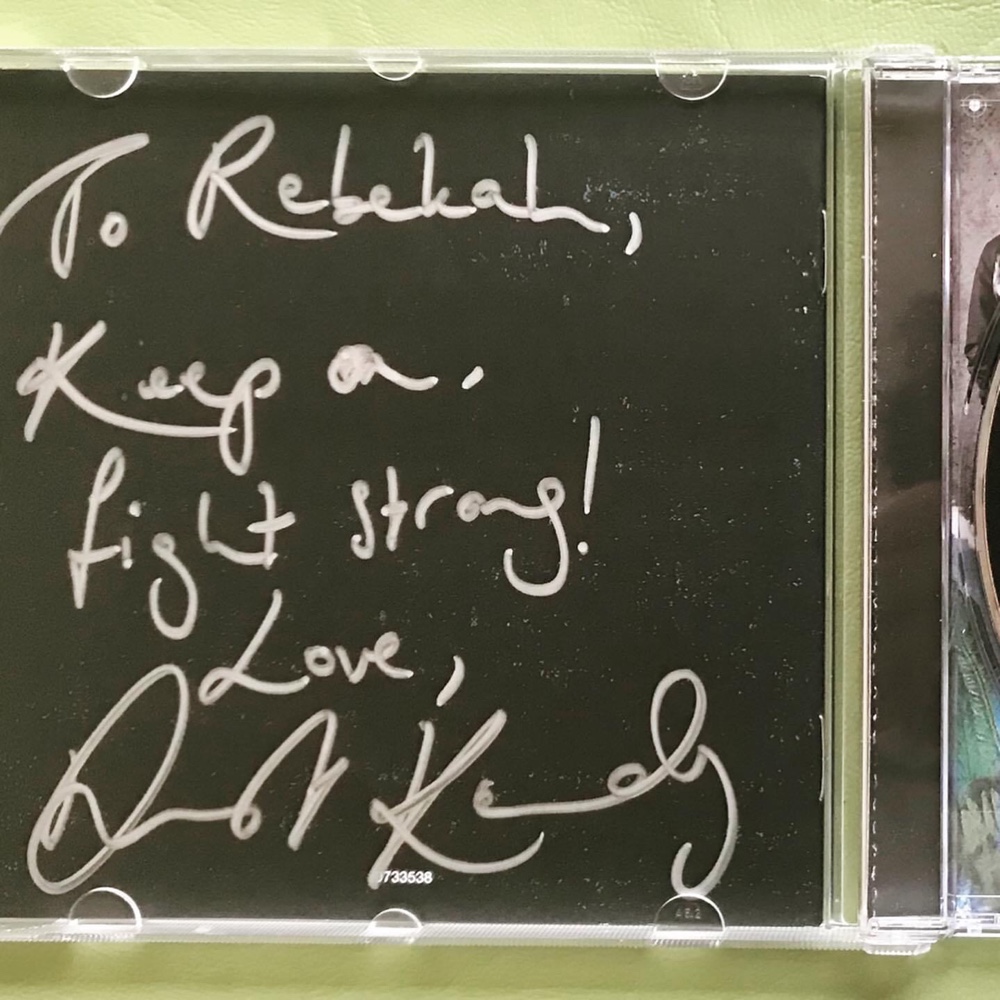 To Rebekah,
Keep on.
fight strong!
Love,
733538